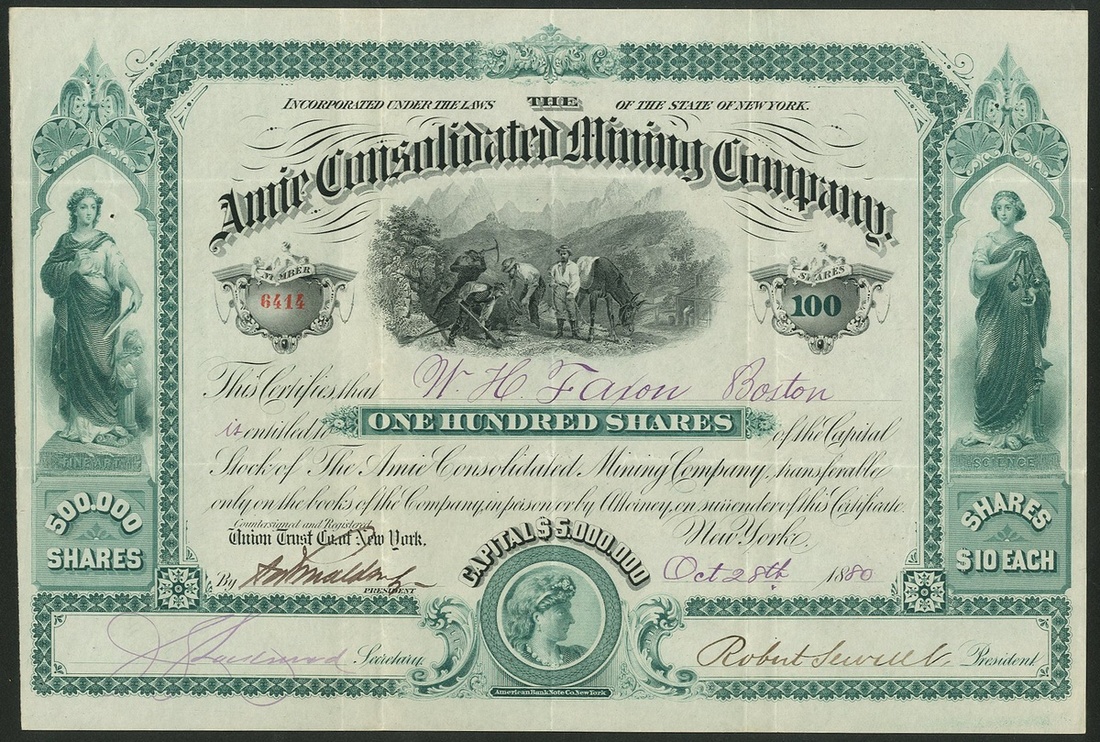 INCORPORATED UNDER THE LAWS THE OF THE STATE OF NEW YORK.
Amie Consolidated Mining Company.
NUMBER
6414
SHARES
100
This Certifies, that W. H. Faxon Boston
is entitled to ONE HUNDRED SHARES of the Capital
Stock of The Amie Consolidated Mining Company, transferable
only on the books of the Company, in person or by Attorney, on surrender of this Certificate.
FINE ART
SCIENCE
500.000
SHARES
SHARES
$10 EACH
Countersigned and Registered
Union Trust Co. of New York.
New York,
CAPITAL $5.000.000
Oct 28th 1880
By
PRESIDENT
Secretary.
Robert Sewell President.
American Bank Note Co. New York